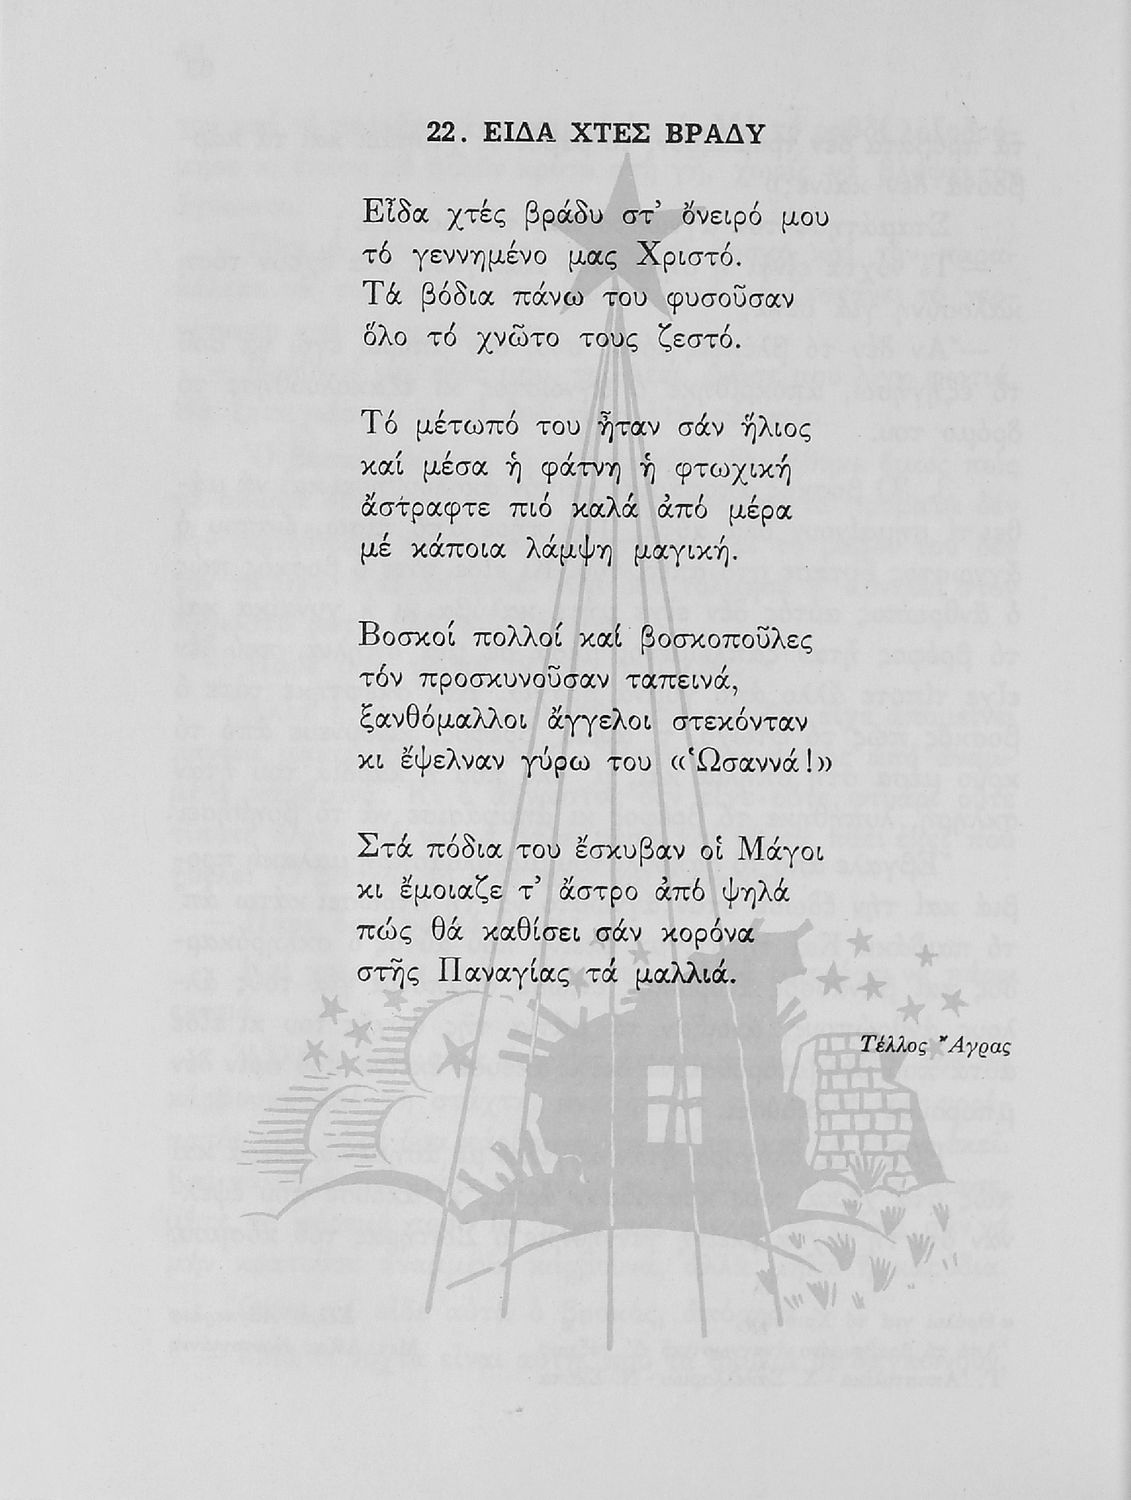 22. ΕΙΔΑ ΧΤΕΣ ΒΡΑΔΥ
Εἶδα χτές βράδυ στ’ ὄνειρό μου
τό γεννημένο μας Χριστό.
Τά βόδια πάνω του φυσοῦσαν
ὅλο τό χνῶτο τους ζεστό.
Τό μέτωπό του ἦταν σάν ἥλιος
καί μέσα ἡ φάτνη ἡ φτωχική
ἄστραφτε πιό καλά ἀπό μέρα
μέ κάποια λάμψη μαγική.
Βοσκοί πολλοί καί βοσκοποῦλες
τόν προσκυνοῦσαν ταπεινά,
ξανθόμαλλοι ἄγγελοι στεκόνταν
κι ἔψελναν γύρω του «Ὡσαννά!»
Στά πόδια του ἔσκυβαν οἱ Μάγοι
κι ἔμοιαζε τ’ ἄστρο ἀπό ψηλά
πώς θά καθίσει σάν κορόνα
στῆς Παναγίας τά μαλλιά.
Τέλλος Ἄγρας